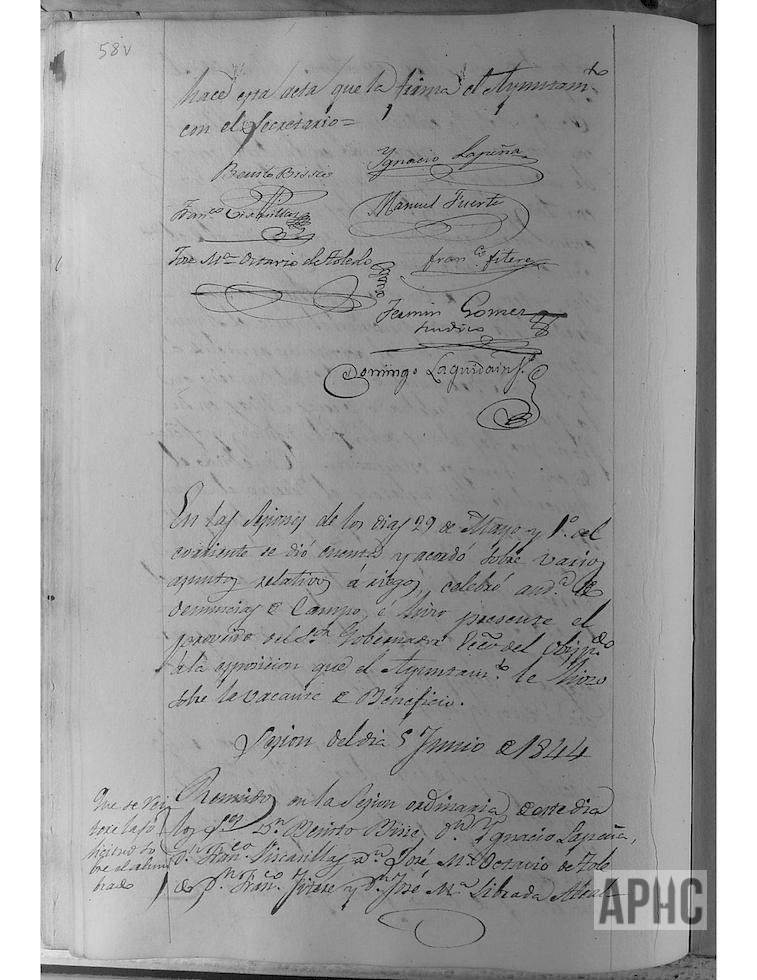 58v
hace esta acta que la firma el Ayuntamto
con el Secretario=
Benito Bissie
Ygnacio Lapeña
Franco Vicanillas
Manuel Fuerte
José Ma Octavio de Toledo
franco fitere
Fermin Gomez
sindico
Domingo Laguidain
En las sesiones de los dias 29 de Mayo y 1o del
corriente se dió cuenta y acordó sobre varios
asuntos relativos á riegos, celebró auda de
denuncias de Campo, é hizo presente el
proveido del Sor Gobernador Ecco del Obispdo
a la oposicion que el Ayuntamto le hizo
sobre la vacante de Beneficio.
Sesion del dia 5 Junio de 1844
Que se rei
tere la so
licitud so
bre el alum
brado
Reunidos en la Sesion ordinaria de este dia
los Sres Dn Benito Bisie, Dn Ygnacio Lapeña,
Dn Franco Vicanillas, Dn José Ma Octavio de Tole
do Dn Franco Fitere y Dn José Ma Librada
APHC